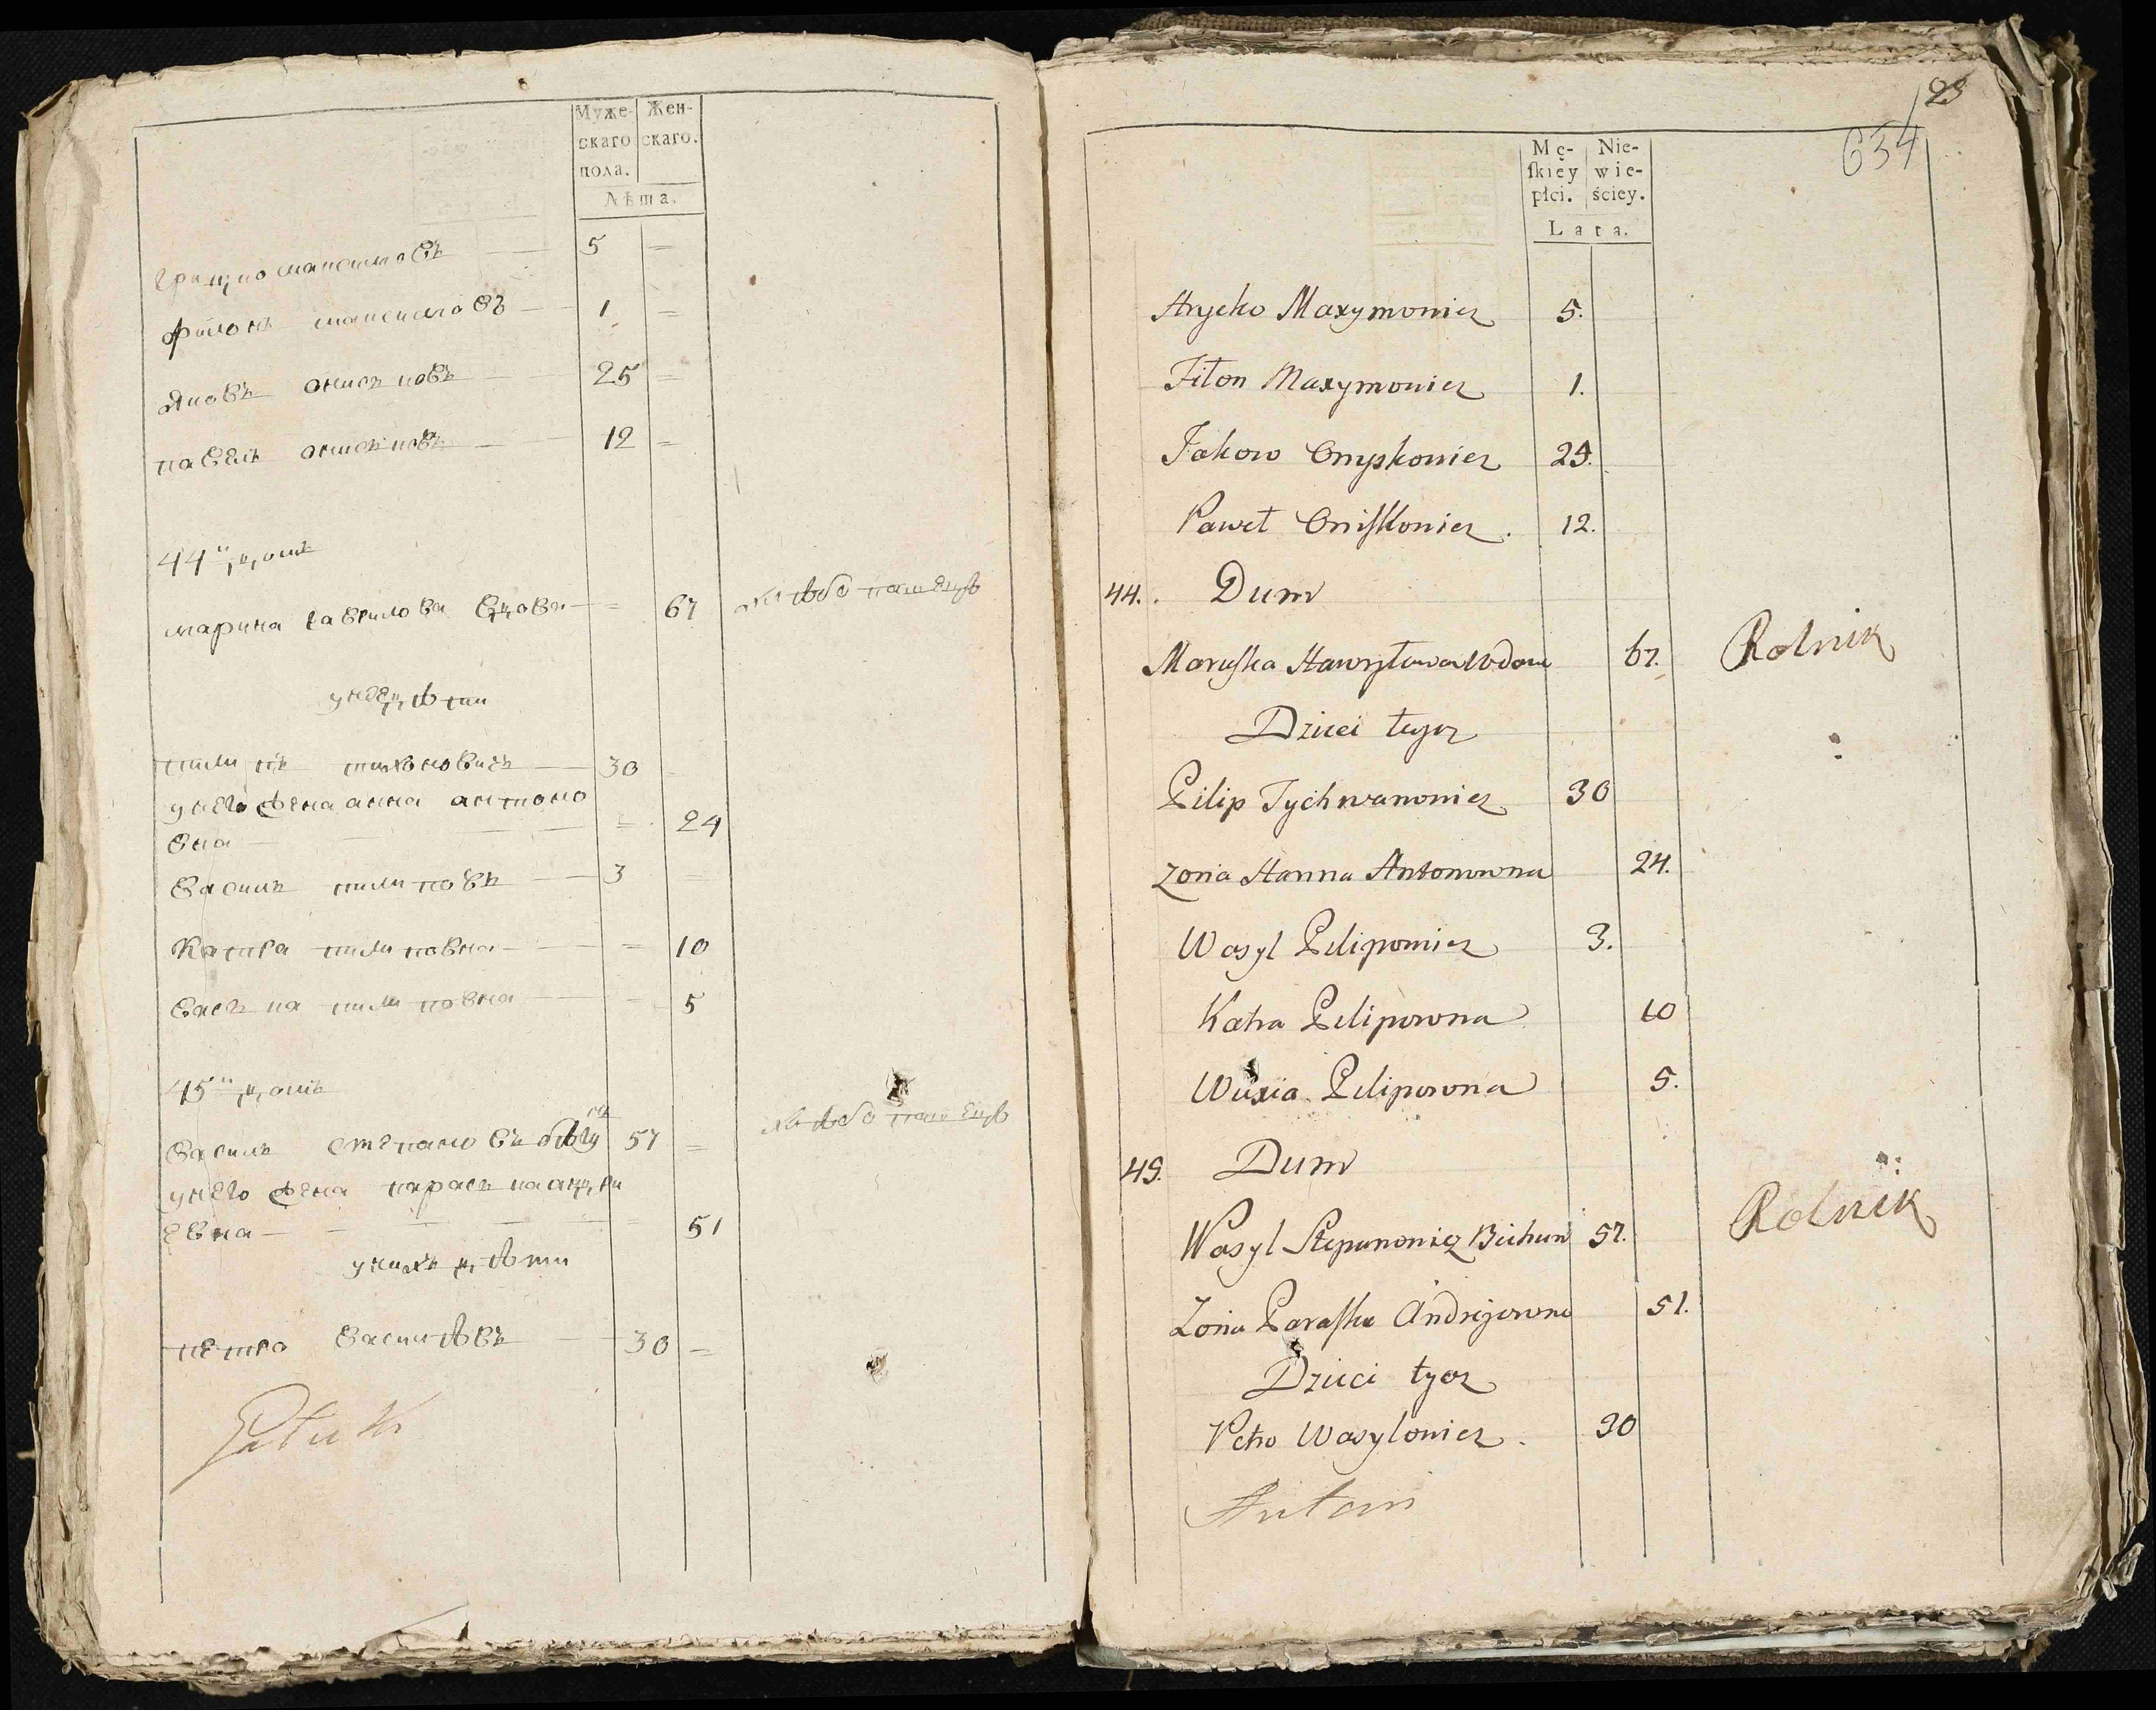 Муже-
скаго
пола.
Жен-
скаго.
Лѣта.
грицко максимовъ 5 =
филонъ максимовъ 1 =
яковъ онисковъ 25 =
павелъ онисковъ 12 =
44й домъ
марина гаврилова вдова = 67 хлѣбо пашецъ
у нее дѣти
пилипъ тихоновичъ 30
у него жена анна антоно
вна = 24
василь пилиповъ 3
Катра пилиповна = 10
васка пилиповна 5
45й домъ
василь степановъ бѣгунъ 57 = хлѣбо пашецъ
у него жена параска андри
евна 51
у нихъ дѣти
петро василѣвъ 30 =
23
634
Mę-
ſkiey
płci.
Nie-
wie-
ściey.
Lata.
Hrycko Maxymowicz 5.
Fiłon Maxymowicz 1.
Jakow Onyskowicz 25.
Paweł Oniſkowicz. 12.
44. Dum
Maruſka Hawryłowa Wdowa 67. Rolnik
Dzieci teyoz
Pilip Tychwanowicz 30
Zona Hanna Antonowna 24.
Wasyl Pilipowicz 3.
Katra Pilipowna 10
Wasia Pilipowna 5.
45. Dum
Wasyl Stepanowicz Bichun 57. Rolnik
Zona Paraſka Andrijowna 51.
Dzieci tyoz
Petro Wasylowicz. 30
Anton